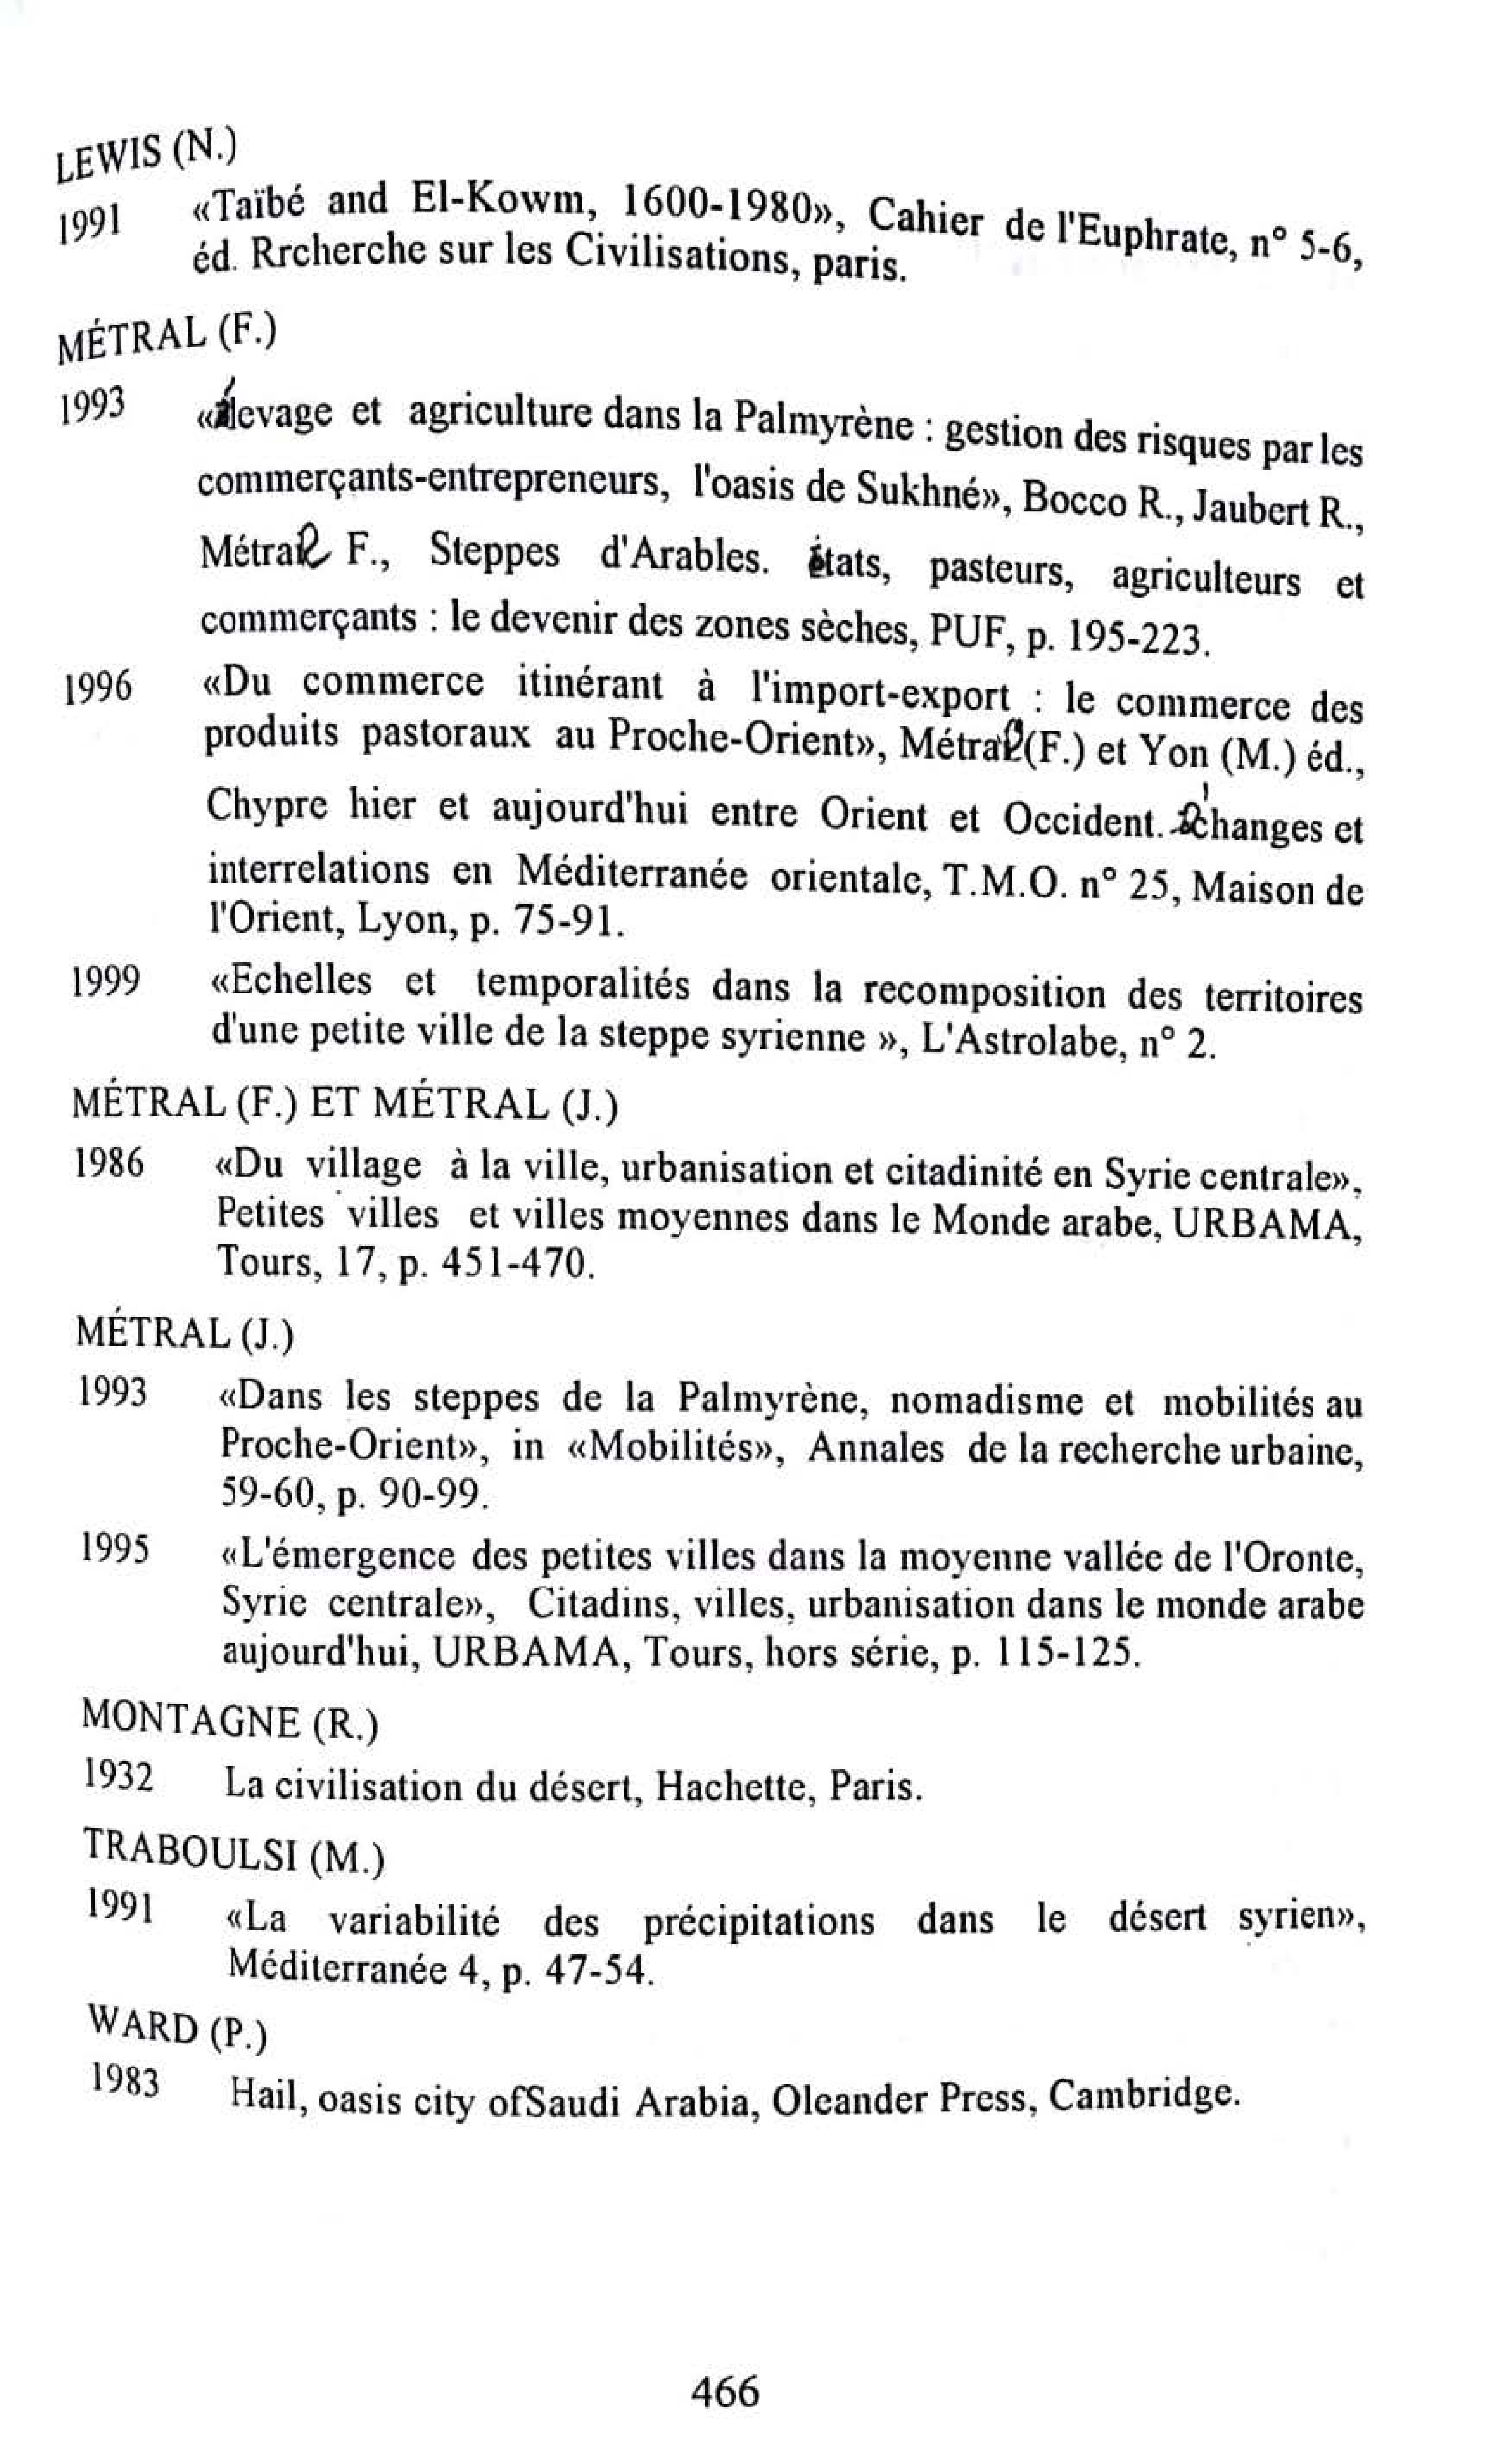 LEWIS (N.)
1991 «Taïbé and El-Kowm, 1600-1980», Cahier de l'Euphrate, n° 5-6,
éd. Rrcherche sur les Civilisations, paris.
MÉTRAL (F.)
1993 «élevage et agriculture dans la Palmyrène : gestion des risques par les
commerçants-entrepreneurs, l'oasis de Sukhné», Bocco R., Jaubert R.,
Métral F., Steppes d'Arables. états, pasteurs, agriculteurs et
commerçants : le devenir des zones sèches, PUF, p. 195-223.
1996 «Du commerce itinérant à l'import-export : le commerce des
produits pastoraux au Proche-Orient», Métral (F.) et Yon (M.) éd.,
Chypre hier et aujourd'hui entre Orient et Occident. échanges et
interrelations en Méditerranée orientale, T.M.O. n° 25, Maison de
l'Orient, Lyon, p. 75-91.
1999 «Echelles et temporalités dans la recomposition des territoires
d'une petite ville de la steppe syrienne », L'Astrolabe, n° 2.
MÉTRAL (F.) ET MÉTRAL (J.)
1986 «Du village à la ville, urbanisation et citadinité en Syrie centrale»,
Petites villes et villes moyennes dans le Monde arabe, URBAMA,
Tours, 17, p. 451-470.
MÉTRAL (J.)
1993 «Dans les steppes de la Palmyrène, nomadisme et mobilités au
Proche-Orient», in «Mobilités», Annales de la recherche urbaine,
59-60, p. 90-99.
1995 «L'émergence des petites villes dans la moyenne vallée de l'Oronte,
Syrie centrale», Citadins, villes, urbanisation dans le monde arabe
aujourd'hui, URBAMA, Tours, hors série, p. 115-125.
MONTAGNE (R.)
1932 La civilisation du désert, Hachette, Paris.
TRABOULSI (M.)
1991 «La variabilité des précipitations dans le désert syrien»,
Méditerranée 4, p. 47-54.
WARD (P.)
1983 Hail, oasis city ofSaudi Arabia, Oleander Press, Cambridge.
466